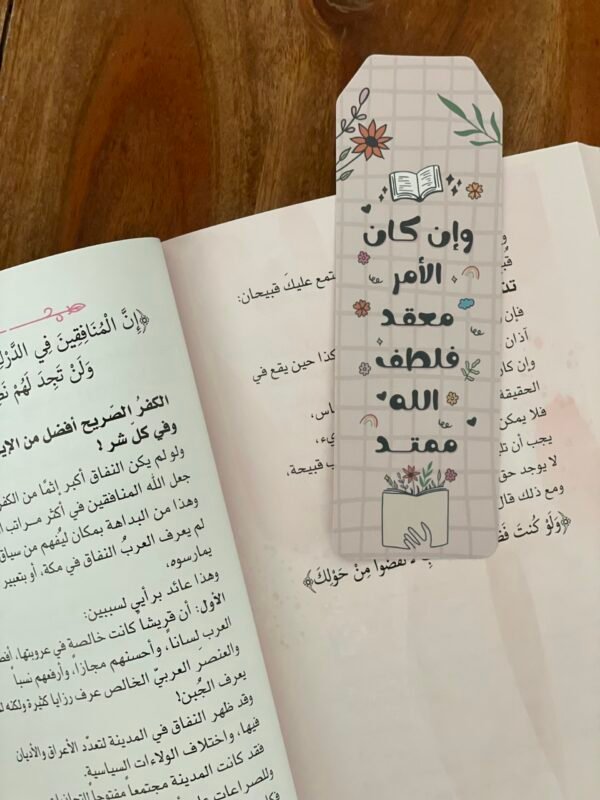 وإن كان
الأمر
معقد
فلطف
الله
ممتد
تمع عليكَ قبيحان:
كذا حين يقع في
وإن كار
الحقيقة
فلا يمكن
يجب أن
لا يوجد حق
ب قبيحة،
ومع ذلك قال
﴿وَلَوْ كُنتَ
مِنْ حَوْلِكَ﴾
﴿إِنَّ الْمُنَافِقِينَ فِي الدَّرْكِ
وَلَن تَجِدَ لَهُمْ
الكفرُ الصّريح أفضل من
وفي كلّ شر!
ولو لم يكن النفاق أكبر إثمًا من الكفر
جعل الله المنافقين في أكثر مراتب
وهذا من البداهة بمكان ليُفهم من سياق
لم يعرف العربُ النفاق في مكة، أو بتعبير
يمارسوه،
وهذا عائد برأيي لسببين:
الأول: أن قريشاً كانت خالصة في عروبتها،
العرب لساناً، وأحسنهم مجازاً، وأرفعهم نسباً
والعنصر العربيّ الخالص عرف رزايا كثيرة ولكنه
يعرف الجُبن!
وقد ظهر النفاق في المدينة لتعدّد الأعراق والأديان
فيها، واختلاف الولاءات السياسية.
فقد كانت المدينة مجتمعاً مفتوحاً
وللصراعات